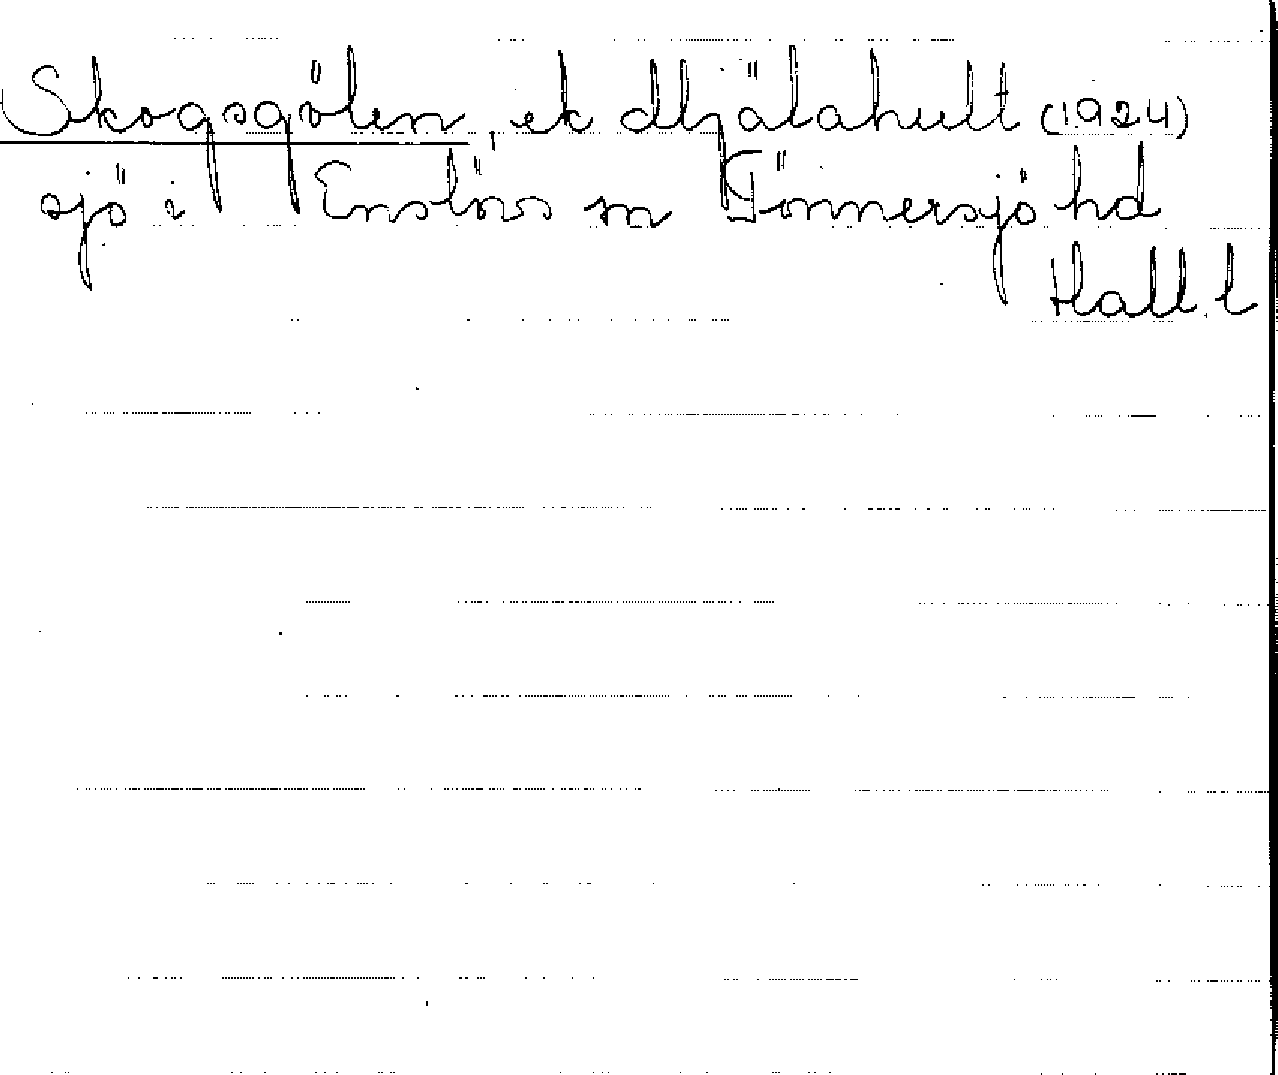 Skogsgölen, ek Mjälahult (1924)
sjö i Enslövs sn Tönnersjö hd
Hall. l